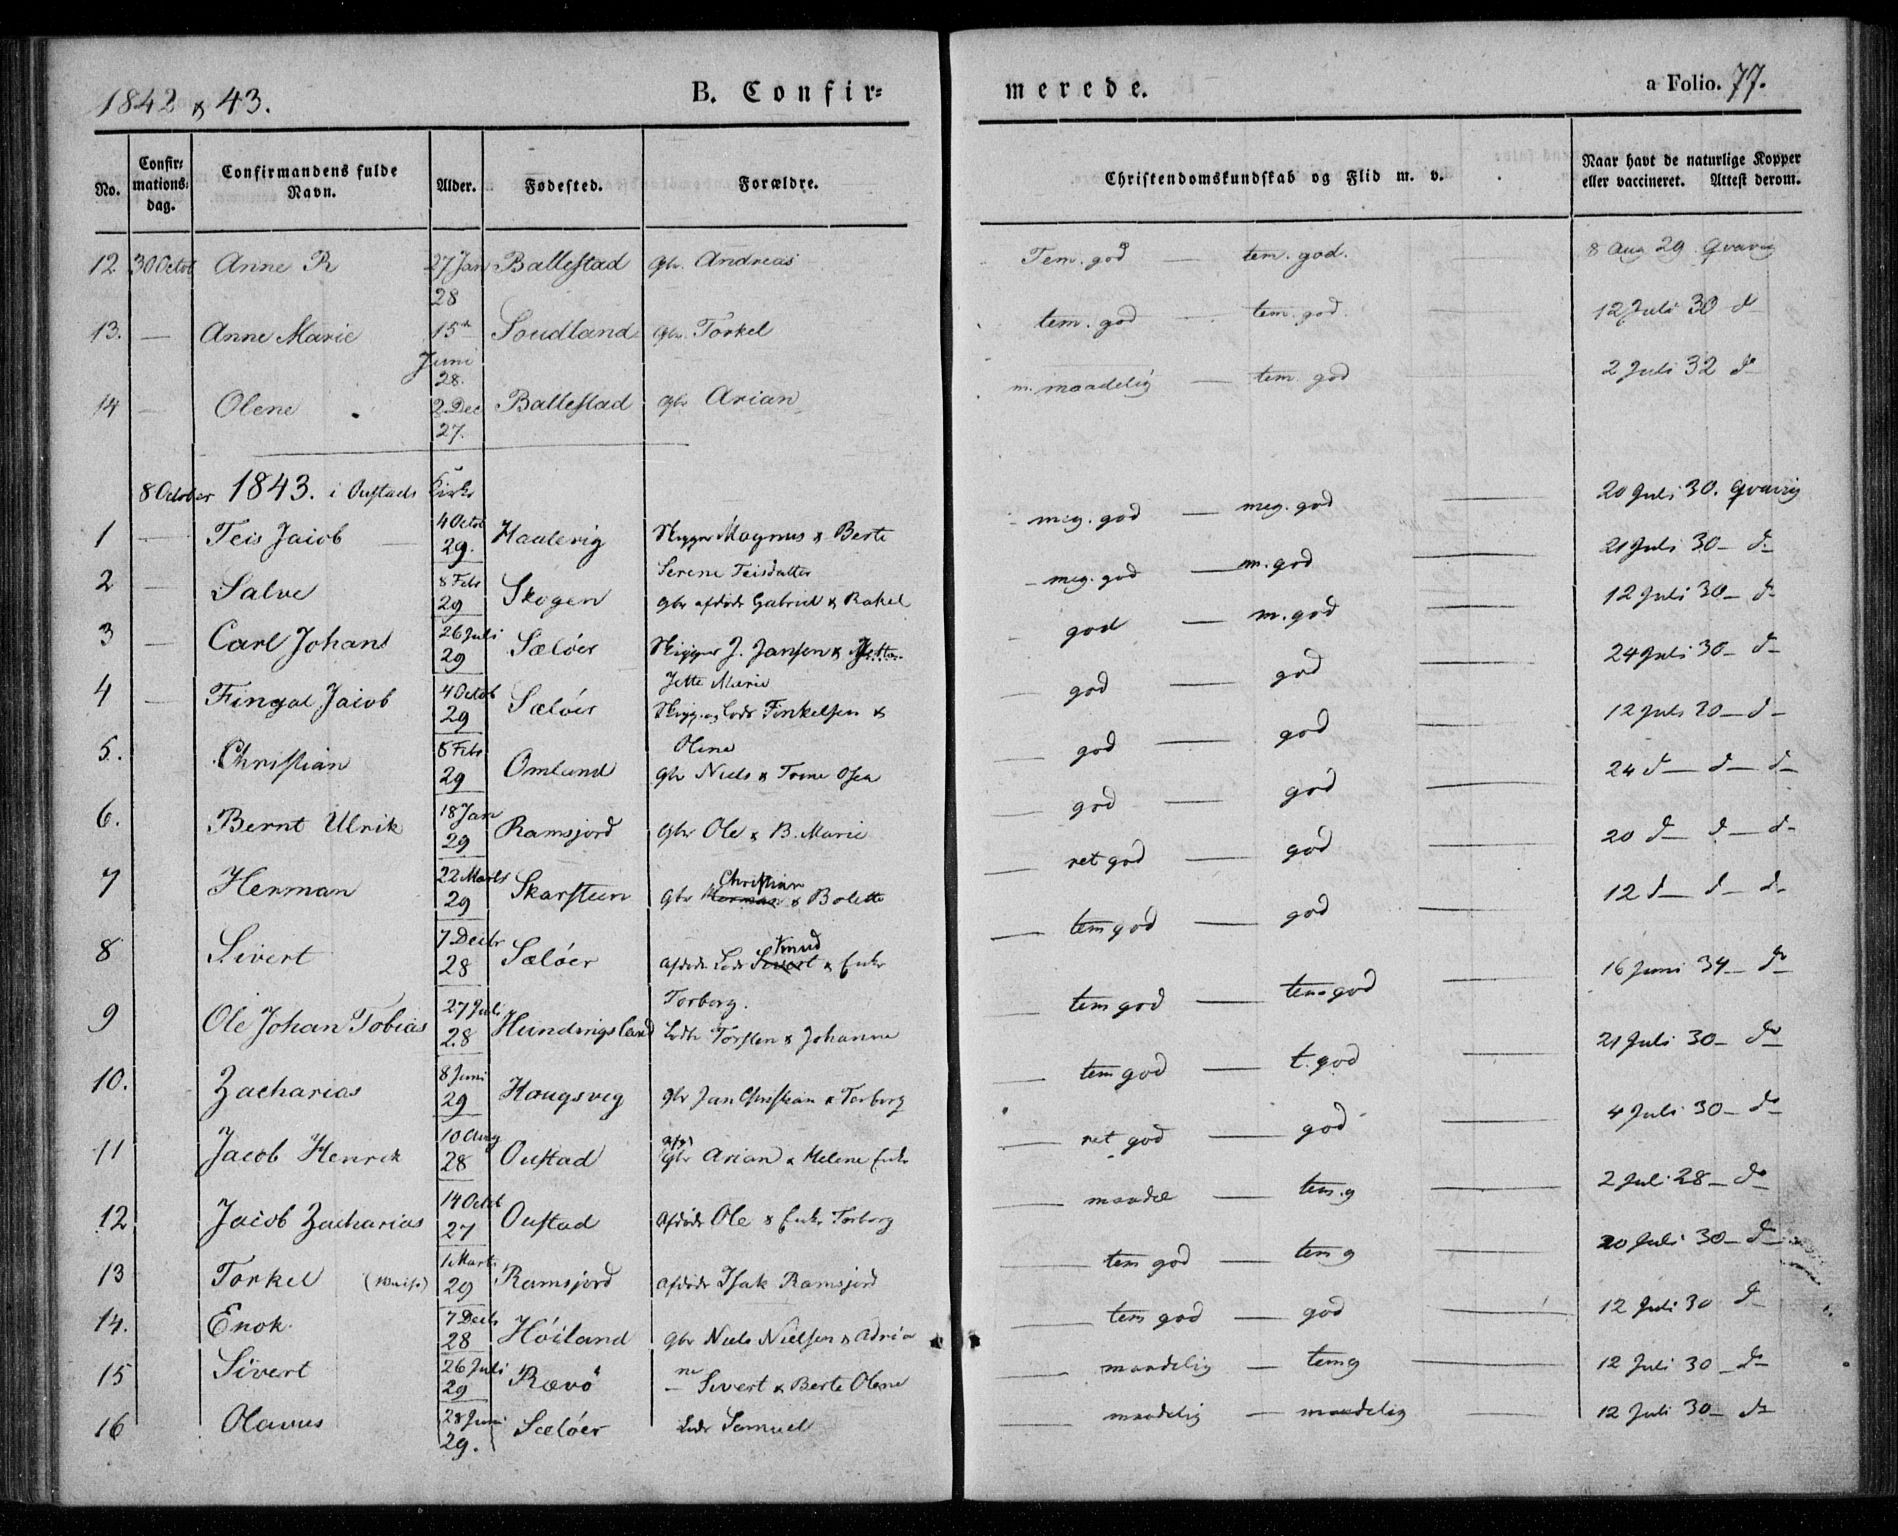 1842 & 43.
B. Confir=
merede.
a Folio. 77.
No.
Confir=
mations=
dag.
Confirmandens fulde
Navn.
Alder.
Fødested.
Forældre.
Christendomskundskab og Flid m. v.
Naar havt de naturlige Kopper
eller vaccineret. Attest derom.
12 30 Octob Anne R 27 Jan Ballestad gbr. Andreas Tem. god — tem. god. 8 Aug 29 Qvavig
28
13. — Anne Marie 15 Soudland gbr. Torkel tem. god — tem. god. 12 Juli 30 d
Juni
28.
14 — Olene 2 Dec Ballestad gbr Arian m. maadelig — tem. god 2 Juli 32 d
27.
8 October 1843. i Oustads Kirke
1 — Teis Jacob 4 Octob Haalevig Skipper Magnus & Berte meg. god — meg. god 20 Juli 30. Qvavig
29. Serene Teisdatter
2 — Salve 8 Febr Skogen gbr afdøde Gabriel & Rakel meg. god — m. god 21 Juli 30 — d
29
3 — Carl Johans 26 Juli Sæløer Skipper J. Jansen & god — m. god 12 Juli 30 — d
29 Jette Marie
4 — Fingal Jacob 4 Octob Sæløer Skipp. og Lods Finkelsen & god — god 24 Juli 30 — d
29 Olene
5. Christian 8 Febr Omland gbr Niels & Trine Osea god — god 12 Juli 30 — d
29
6. Bernt Ulrik 18 Jan Ramsjord gbr Ole & B. Marie god — god 24 d — d — d
29
7 Herman 22 Marts Skarsteen gbr Christian & Bolette ret god — god 20 d — d — d
29
8 Sivert 7 Decbr Sæløer afdøde Lods Knud & Enke tem god — god 12 d — d — d
28 Torborg.
9 Ole Johan Tobias 27 Juli Hundingsland Lods Torsten & Johanne tem god — tem god 16 Juni 34 — do
28
10. Zacharias 8 Juni Hougsvig gbr Jan Christian & Torborg tem god — t. god 21 Juli 30 — do
29
11 Jacob Henrik 10 Aug Oustad afd gbr Arian & Helene Enke ret god — god 4 Juli 30 — do
28
12 Jacob Zacharias 14 Octob Oustad Afdøde Ole & Enke Torborg maadel — tem. g 2 Juli 28 — do
27
13 Torkel 1 Marts Ramsjord afdøde Isak Ramsjord tem god — tem g 20 Juli 30 — d
29
14. Enok 7 Decb Høiland gbr Niels Nielsen & Adria tem god — god 12 Juli 30 d
28 ne
15 Sivert 26 Juli Rævø — Sivert & Berte Olene maadelig — tem g 12 Juli 30 — do
29
16 Olavus 28 Juni Sæløer Lods Samuel maadelig — maadelig 12 Juli 30 — do
29.